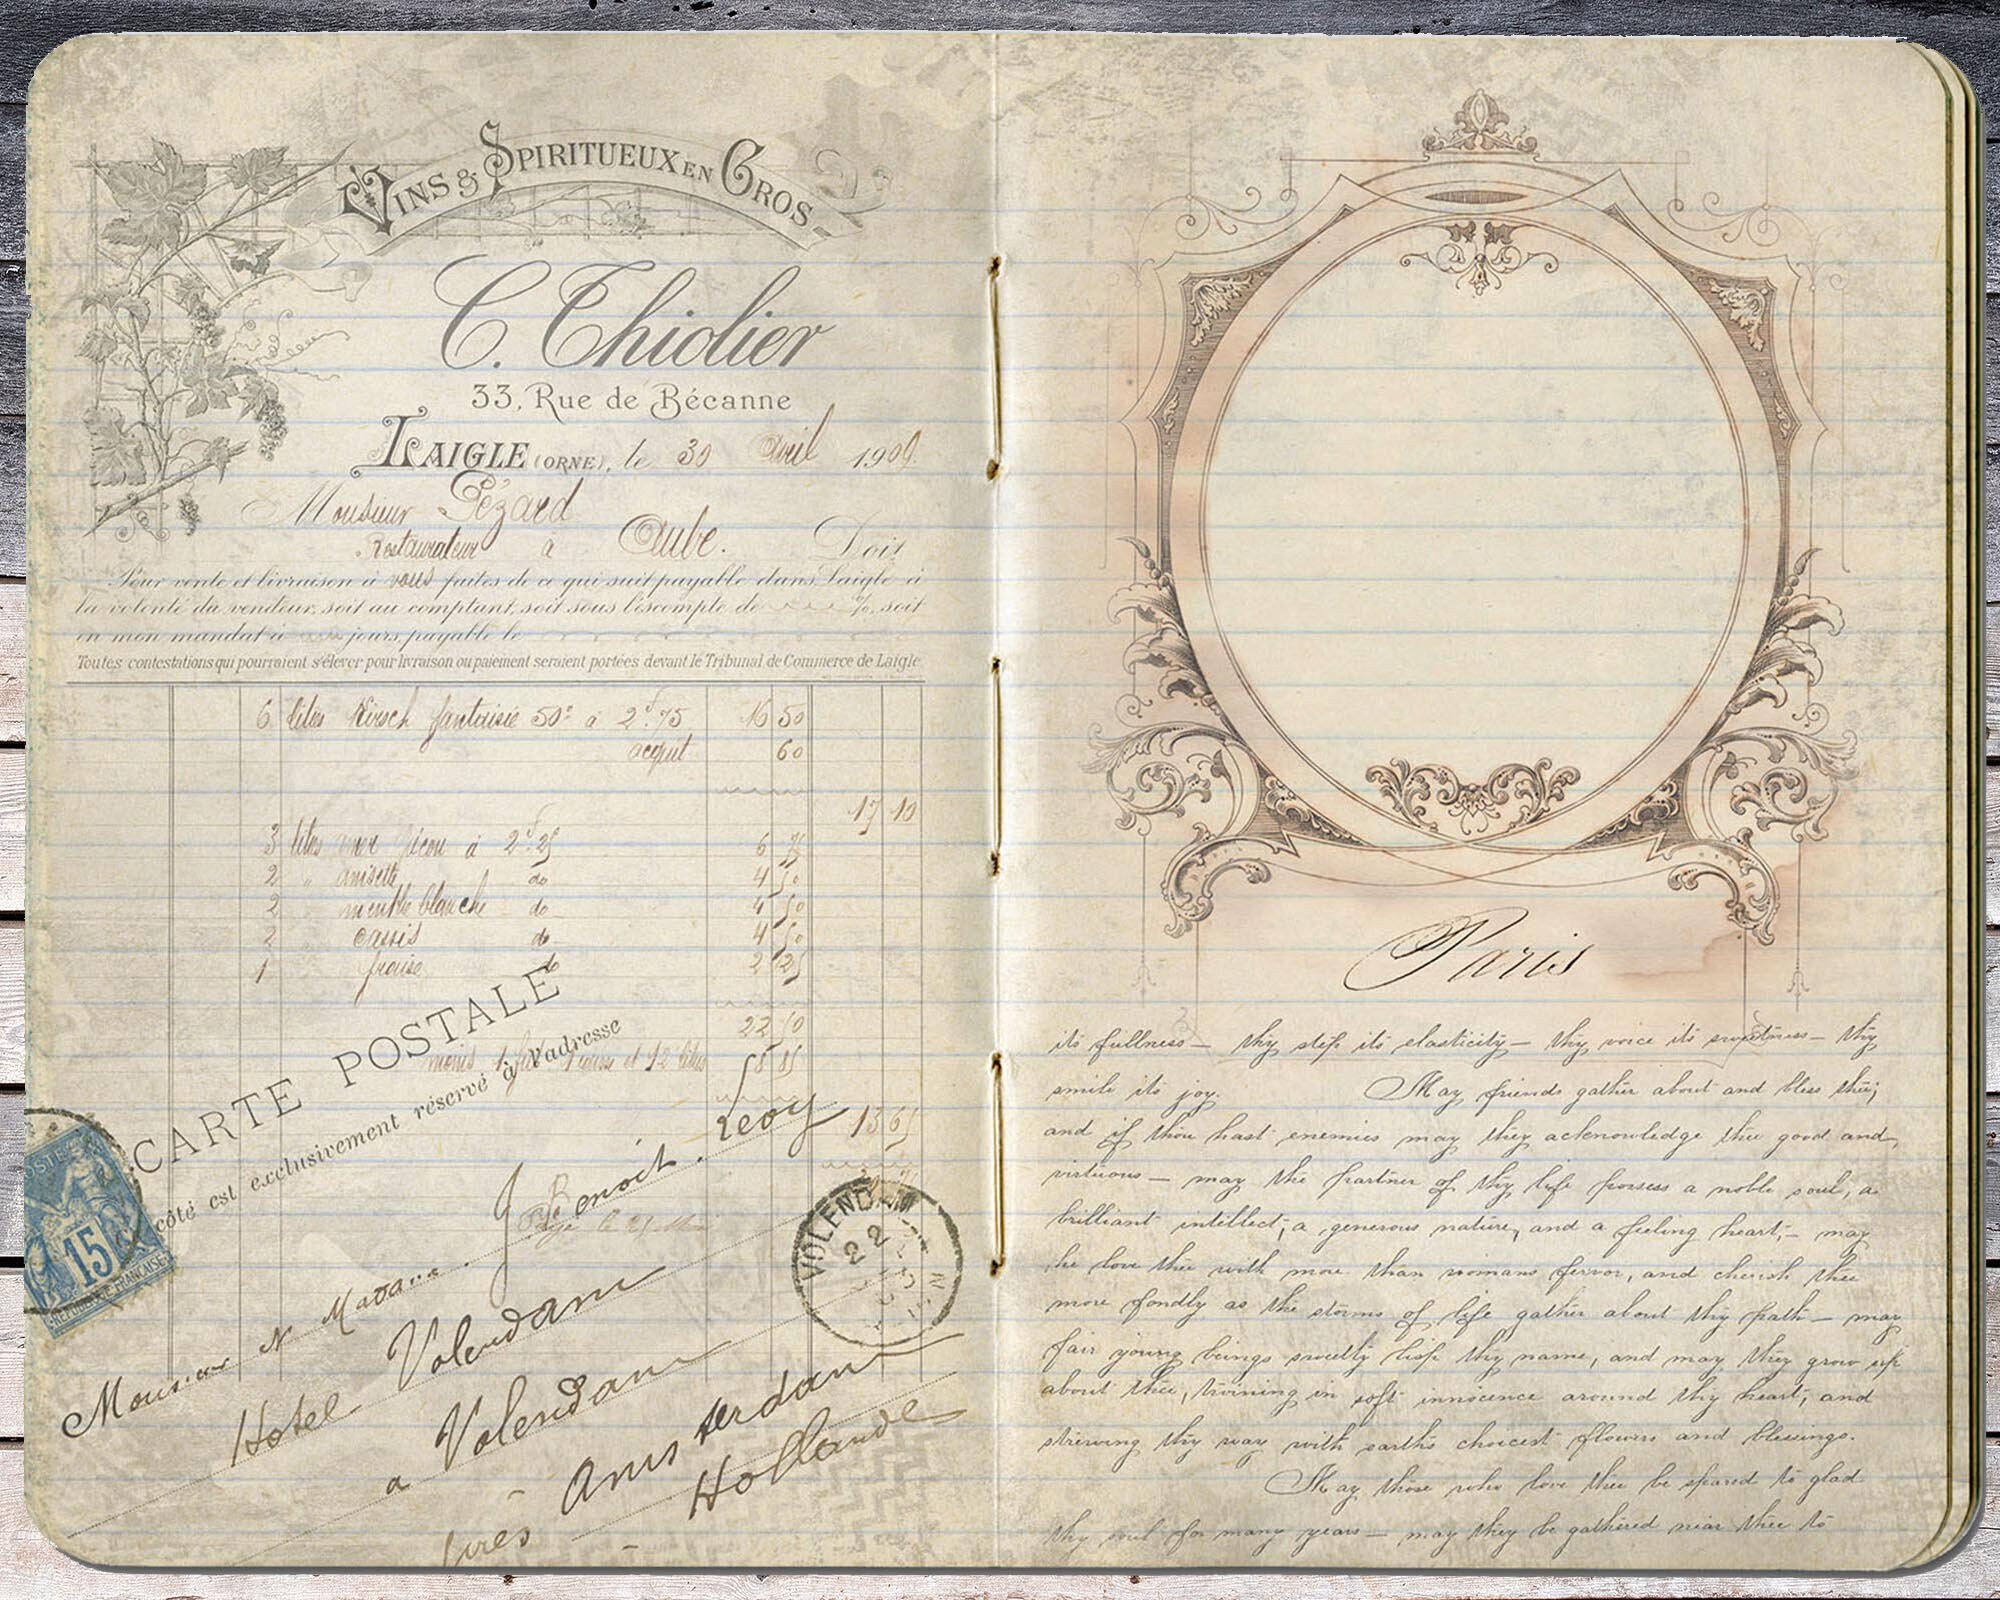 VINS & SPIRITUEUX EN GROS
C. Thiolier
33, Rue de Bécanne
LAIGLE (ORNE), le 30 Avril 1909
Monsieur Gézard
Restaurateur à Aube. Doit
Pour vente et livraison à vous faites de ce qui suit payable dans Laigle à
la volonté du vendeur, soit au comptant, soit sous l'escompte de %, soit
en mon mandat à jours, payable le
Toutes contestations qui pourraient s'élever pour livraison ou paiement seraient portées devant le Tribunal de Commerce de Laigle
6 litres Kirsch fantaisie 50° à 2f.75 16 50
acquit 60
17 10
3 litres amer Picon à 2f.25 6 75
2 " anisette do 4 50
2 menthe blanche do 4 50
2 cassis do 4 50
1 fraise do 2 25
22 50
moins 1 et 12 litres 8 85
13 65
CARTE POSTALE
côté est exclusivement réservé à l'adresse
POSTES
15
REPUBLIQUE FRANCAISE
VOLENDAM
22
Monsieur et Madame J Benoit. Levy
Hotel Volendam
a Volendam
près Amsterdam
Hollande
Paris
its fullness — thy step its elasticity — thy voice its sweetness — thy
smile its joy. May friends gather about and bless thee;
and if thou hast enemies may they acknowledge thee good and
virtuous — may the partner of thy life possess a noble soul, a
brilliant intellect, a generous nature, and a feeling heart, — may
he love thee with more than womans fervor, and cherish thee
more fondly as the storms of life gather about thy path — may
fair young beings sweetly lisp thy name, and may they grow up
about thee, twining in soft innocence around thy heart, and
strewing thy way with earth's choicest flowers and blessings.
May those who love thee be spared to glad
thy soul for many years — may they be gathered near thee to